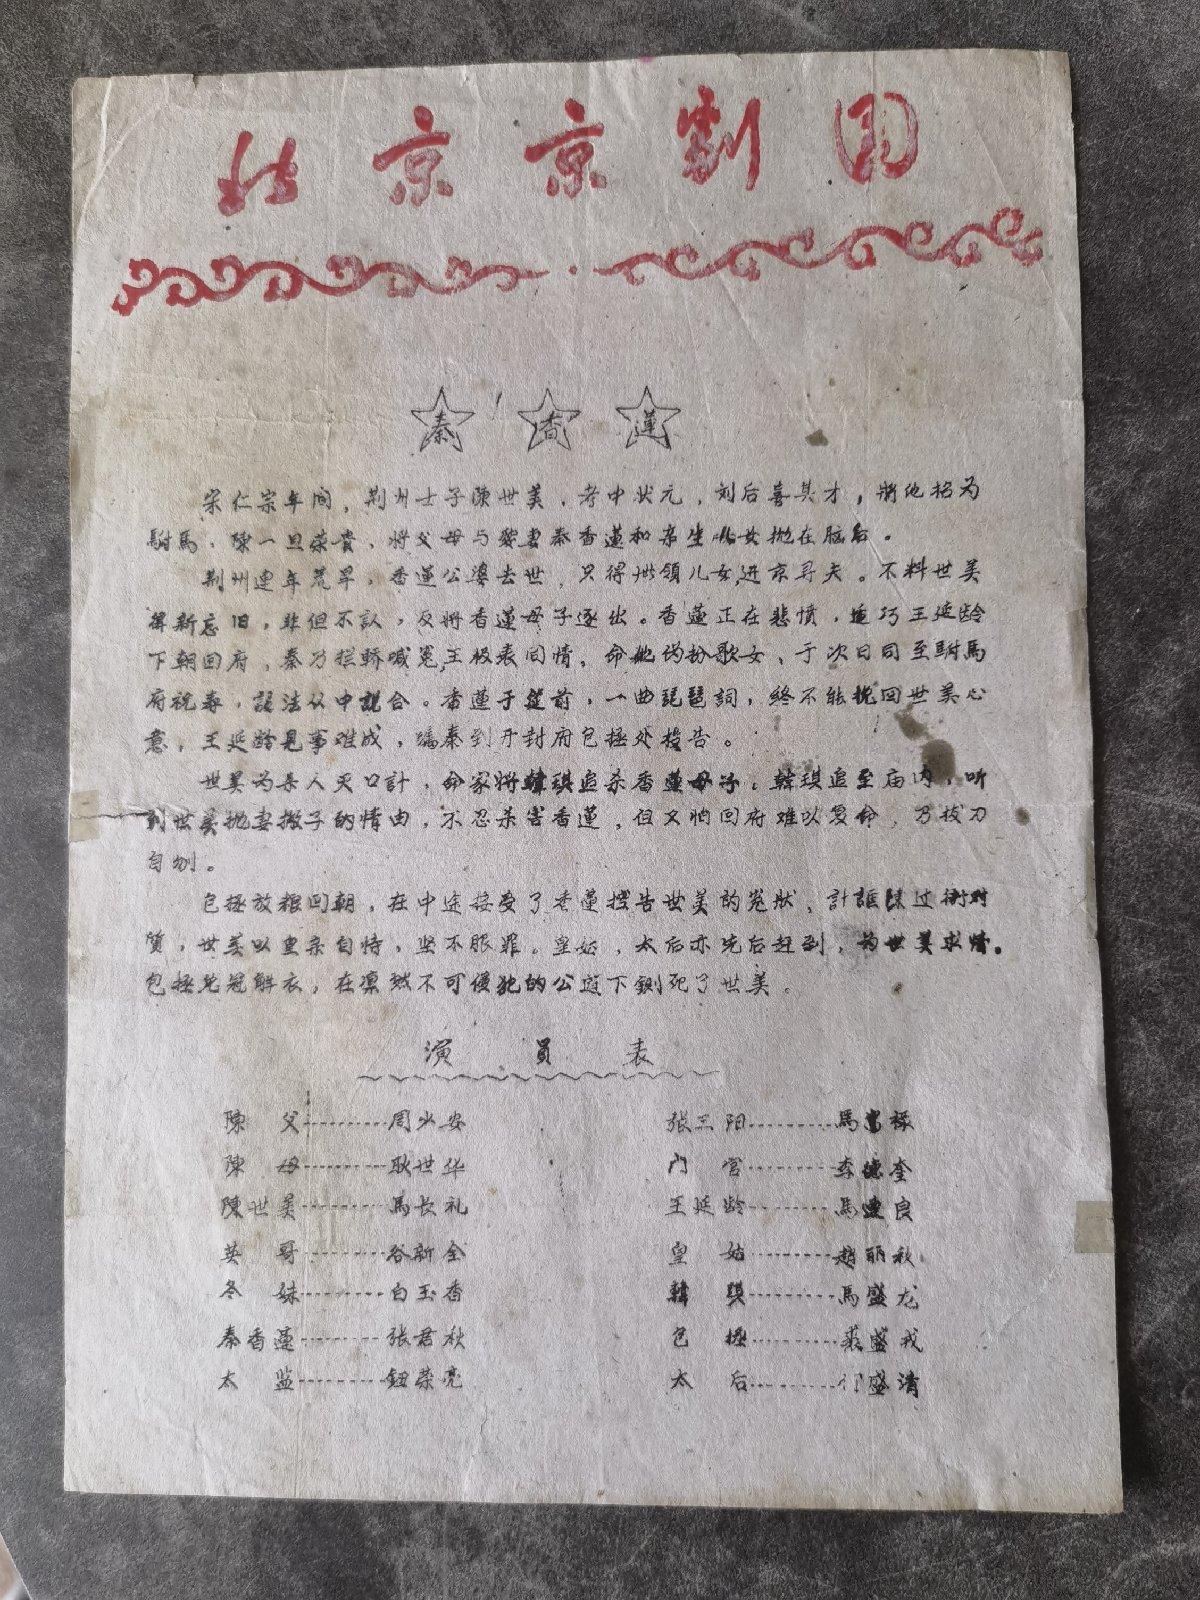 北京京剧团
秦香蓮
宋仁宗年间，荆州士子陳世美，考中状元，刘后喜其才，將他招为
駙馬．陳一旦荣貴，将父母与发妻秦香蓮和亲生儿女抛在脑后。
荆州連年荒旱，香蓮公婆去世，只得携領儿女进京寻夫。不料世美
得新忘旧，非但不認，反将香蓮母子逐出。香蓮正在悲憤，適巧王延龄
下朝回府，秦乃拦轿喊冤，王极表同情，命她伪扮歌女、于次日同至駙馬
府祝寿，設法从中説合。香蓮于筵前，一曲琵琶詞，終不能挽回世美心
意，王延龄見事难成，嘱秦到开封府包拯处投告。
世美为杀人灭口計，命家将韓琪追杀香蓮母子；韓琪追至庙内，听
到世美抛妻撇子的情由，不忍杀害香蓮，但又怕回府难以复命，乃拔刀
自刎。
包拯放粮回朝，在中途接受了香蓮控告世美的冤狀、計誆陳过衙对
質，世美以皇亲自恃，坚不服罪。皇姑，太后亦先后赶到，为世美求情。
包拯免冠解衣，在凛然不可侵犯的公庭下鍘死了世美。
演員表
陳父---------周少安
陳母---------耿世华
陳世美---------馬长礼
英哥---------谷新全
冬妹---------白玉香
秦香蓮---------张君秋
太监---------鈕荣亮
张三阳---------馬富禄
门官---------李德奎
王延龄---------馬連良
皇姑---------趙丽秋
韓琪---------馬盛龙
包拯---------裘盛戎
太后---------盛清